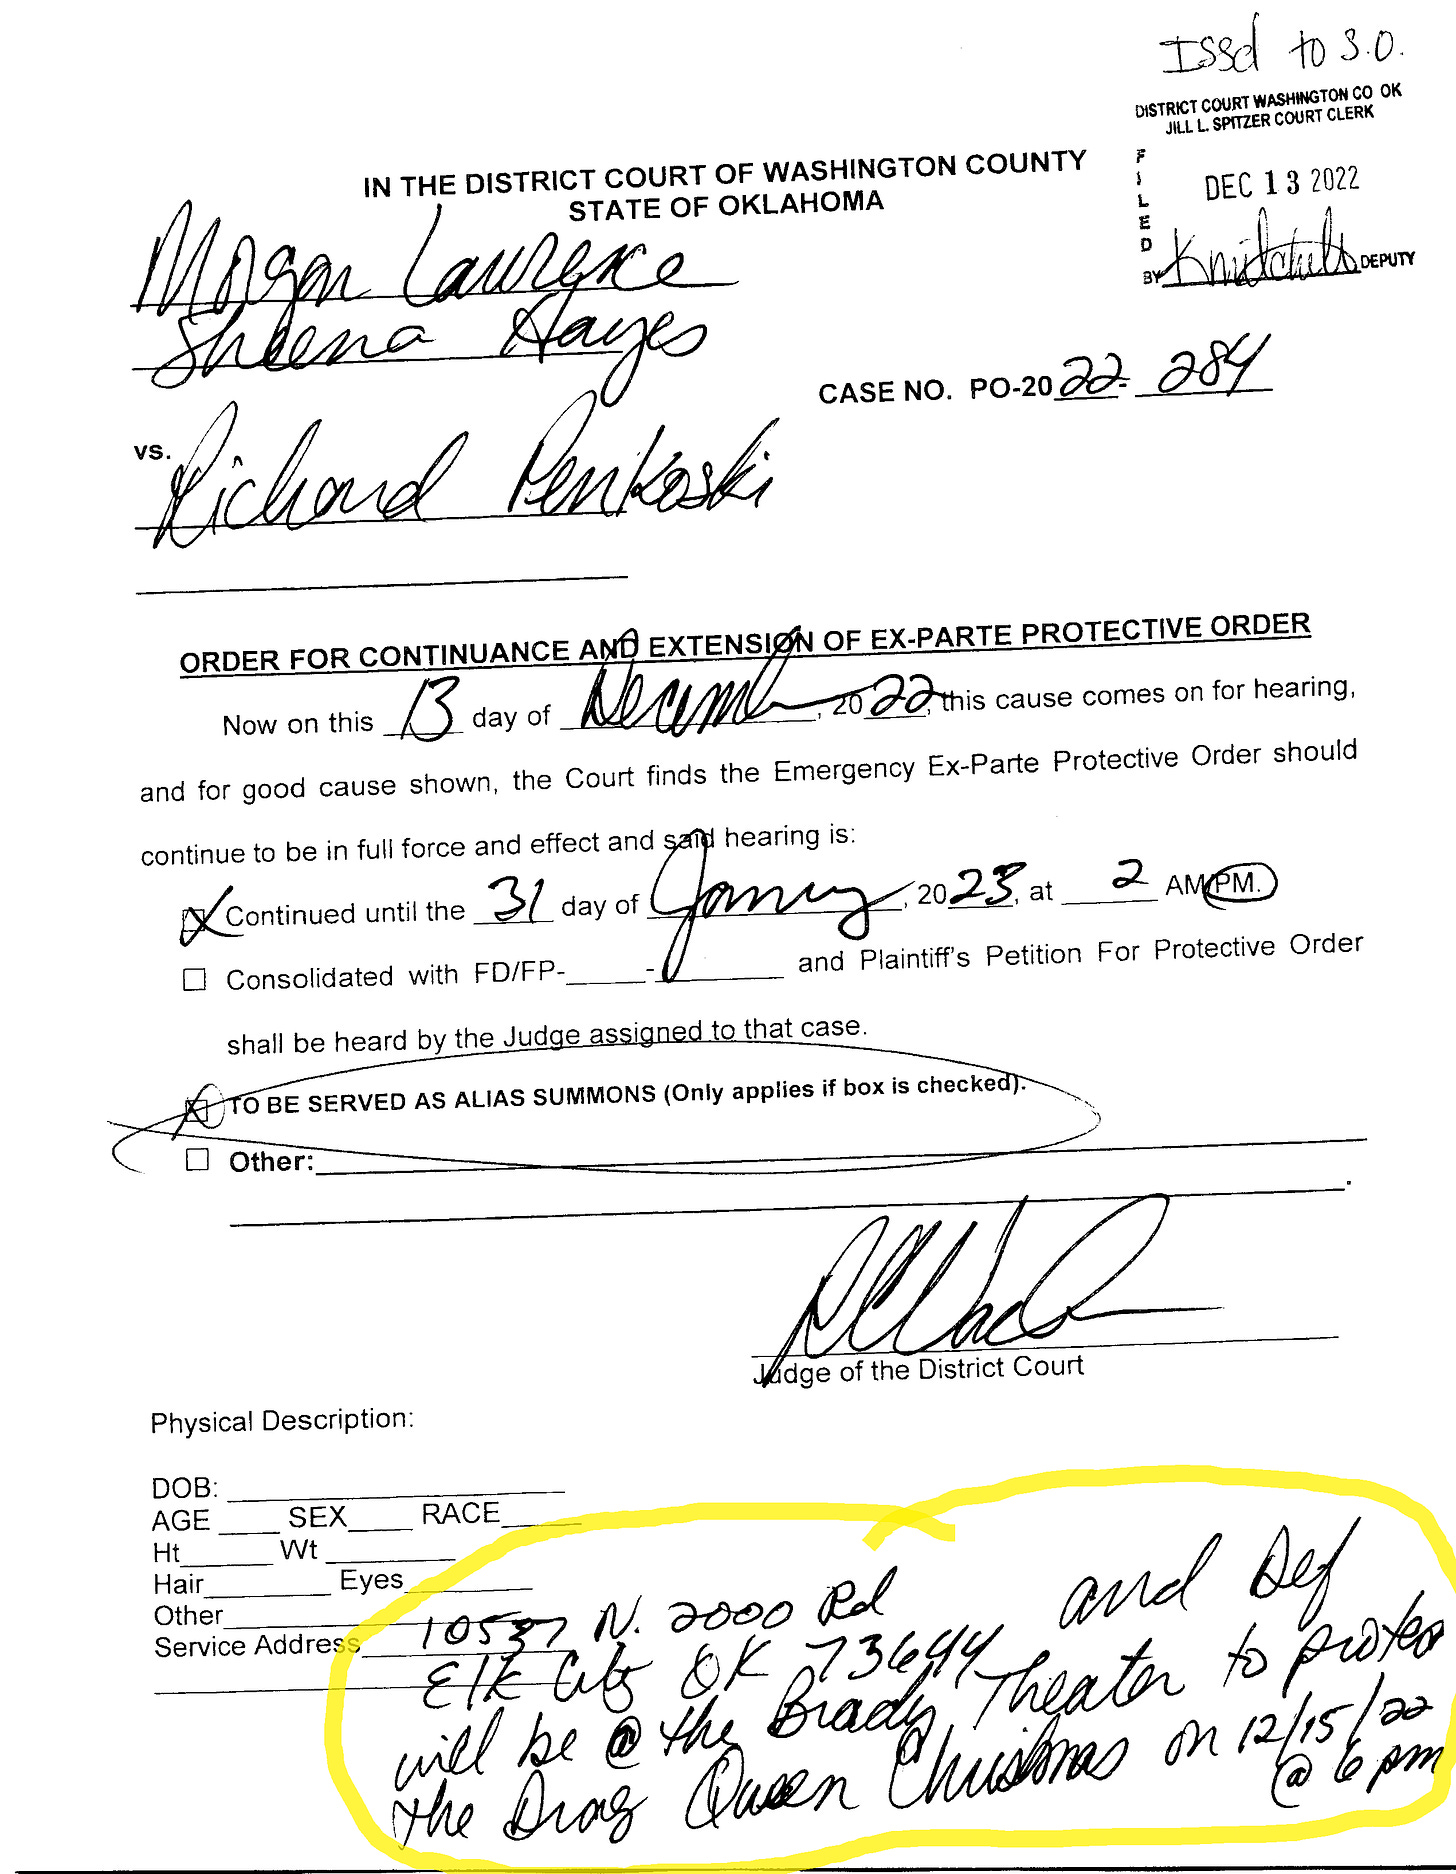 Issd to S.O.
DISTRICT COURT WASHINGTON CO OK
JILL L. SPITZER COURT CLERK
FILED
DEC 13 2022
BY DEPUTY
IN THE DISTRICT COURT OF WASHINGTON COUNTY
STATE OF OKLAHOMA
Morgan Lawrence
Sheena Hayes
CASE NO. PO-2022-284
vs.
Richard Penkoski
ORDER FOR CONTINUANCE AND EXTENSION OF EX-PARTE PROTECTIVE ORDER
Now on this 13 day of December, 2022, this cause comes on for hearing,
and for good cause shown, the Court finds the Emergency Ex-Parte Protective Order should
continue to be in full force and effect and said hearing is:
X Continued until the 31 day of January, 2023, at 2 AM/PM.
☐ Consolidated with FD/FP-____-____ and Plaintiff's Petition For Protective Order
shall be heard by the Judge assigned to that case.
X TO BE SERVED AS ALIAS SUMMONS (Only applies if box is checked).
☐ Other:
Judge of the District Court
Physical Description:
DOB:
AGE SEX RACE
Ht Wt
Hair Eyes
Other
Service Address 10537 N. 2000 Rd and Def
Elk City OK 73644
will be @ the Brady Theater to protest
the Drag Queen Christmas on 12/15/22
@ 6 pm